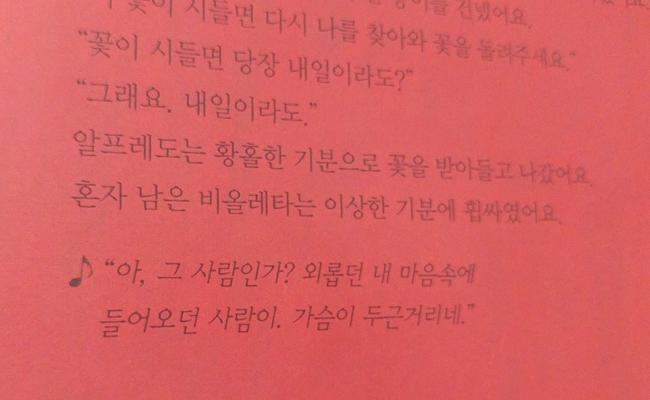 꽃이 시들면 다시 나를 찾아와 꽃을 돌려주세요."
"꽃이 시들면 당장 내일이라도?"
"그래요. 내일이라도."
알프레도는 황홀한 기분으로 꽃을 받아들고 나갔어요.
혼자 남은 비올레타는 이상한 기분에 휩싸였어요.
♪ "아, 그 사람인가? 외롭던 내 마음속에
들어오던 사람이. 가슴이 두근거리네."